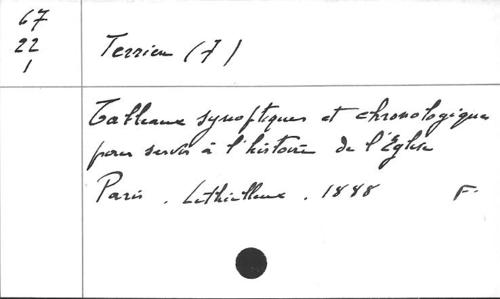 67
22
1
Terrien (J)
Tableaux synoptiques et chronologiques
pour servir à l'histoire de l'Église
Paris . Lethielleux . 1888 F.